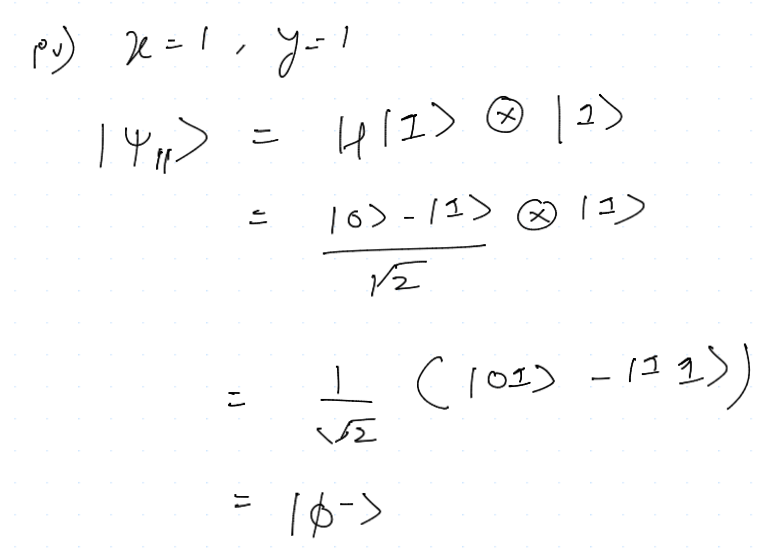 iv) x = 1, y = 1
|ψ₁₁⟩ = H|1⟩ ⊗ |1⟩
= (|0⟩ - |1⟩)/√2 ⊗ |1⟩
= 1/√2 (|01⟩ - |11⟩)
= |ϕ⁻⟩